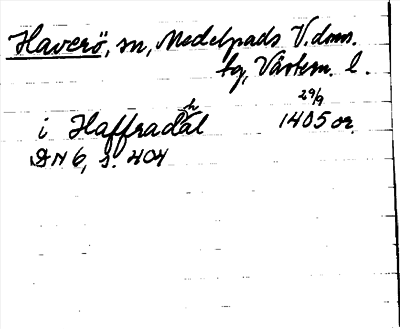 Haverö, sn, Medelpads V. doms.
tg, Västern. l.
29/9
i Haffradal 1405 or.
DN 6, s. 404